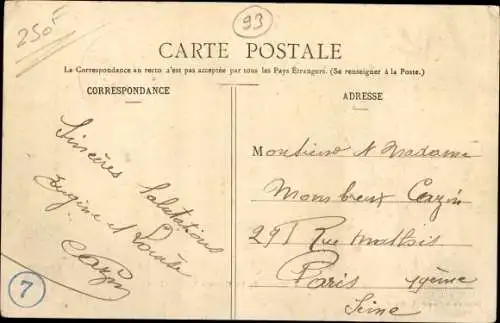 250F
93
CARTE POSTALE
La Correspondance au recto n'est pas acceptée par tous les Pays Étrangers. (Se renseigner à la Poste.)
CORRESPONDANCE
Sincères Salutations
Eugène et
Cazin
7
ADRESSE
Monsieur & Madame
Cazin
291 Rue
Paris 19ème
Seine